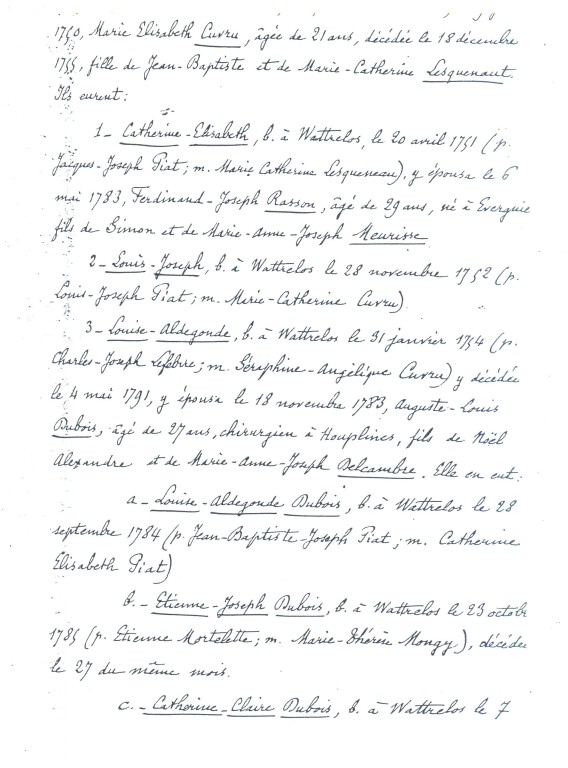 1750, Marie Elisabeth Cuvru, âgée de 21 ans, décédée le 18 décembre
1755, fille de Jean-Baptiste et de Marie-Catherine Lesquenaut.
Ils eurent :
1 – Catherine-Elisabeth, b. à Wattrelos, le 20 avril 1751 (p.
Jacques-Joseph Piat ; m. Marie Catherine Lesqueneau), y épousa le 6
mai 1783, Ferdinand-Joseph Rasson, âgé de 29 ans, né à Everguie
fils de Simon et de Marie-Anne-Joseph Meurisse
2 – Louis-Joseph, b. à Wattrelos le 28 novembre 1752 (p.
Louis-Joseph Piat ; m. Marie-Catherine Cuvru).
3 – Louise-Aldegonde, b. à Wattrelos le 31 janvier 1754 (p.
Charles-Joseph Lefebvre ; m. Séraphine-Angélique Cuvru) y décédée
le 4 mai 1791, y épousa le 18 novembre 1783, Auguste-Louis
Dubois, âgé de 27 ans, chirurgien à Houplines, fils de Noël
Alexandre et de Marie-Anne-Joseph Delcambre. Elle en eut :
a – Louise-Aldegonde Dubois, b. à Wattrelos le 28
septembre 1784 (p. Jean-Baptiste-Joseph Piat ; m. Catherine
Elisabeth Piat)
b. – Etienne-Joseph Dubois, b. à Wattrelos le 23 octobr
1785 (p. Etienne Mortelette ; m. Marie-Thérèse Mongy), décédée
le 27 du même mois.
c. – Catherine-Claire Dubois, b. à Wattrelos le 7